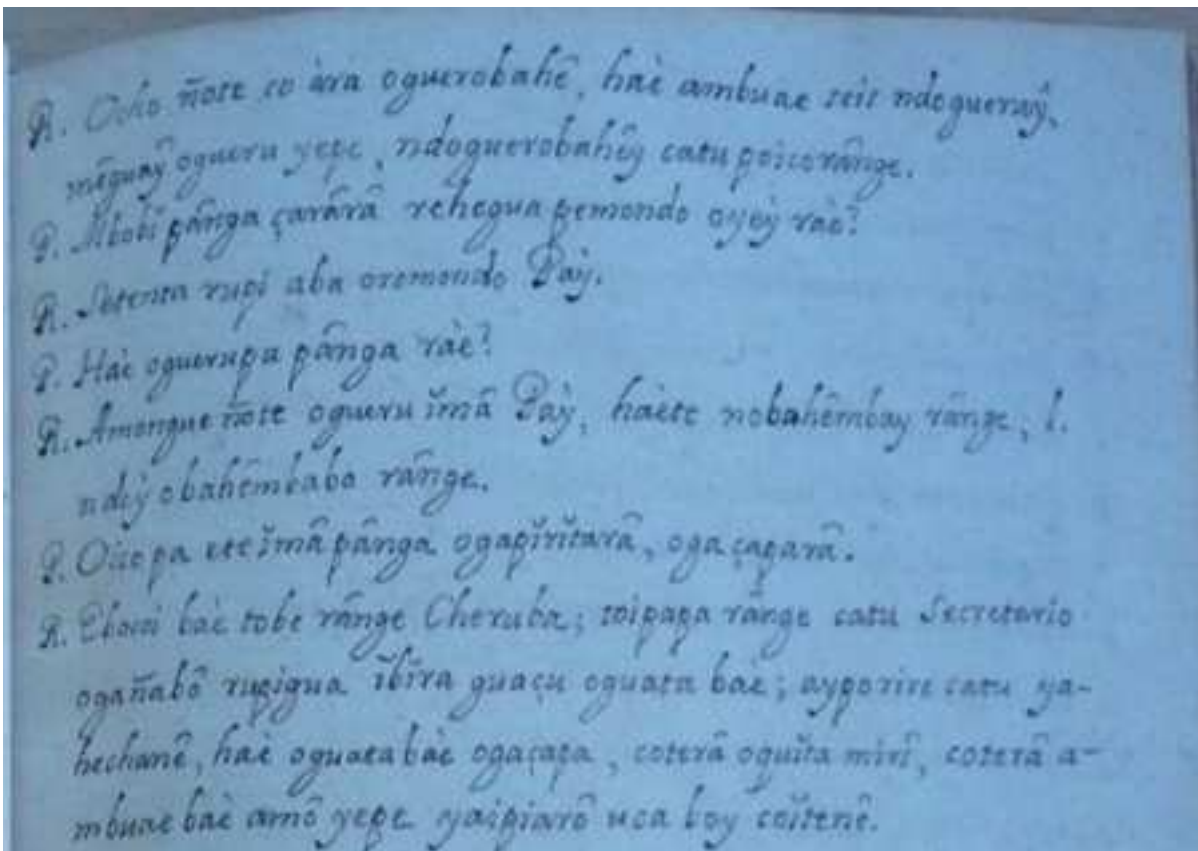 R. Ocho ñote co àra oguerobahê, haè ambuae seis ndogueruỹ,
mẽguaỹ ogueru yepe, ndoguerobahêỹ catu poicorânge.
P. Mboĩ pânga çarârâ rêhegua pemondo oyoỹ raè?
R. Setenta rupi aba oremondo Paỳ.
P. Haè oguerupa pânga raè?
R. Amongue ñote ogueru ĭmâ Paỳ, haète nobahêmbay rânge, l.
ndiỹ obahêmbabo rânge.
P. Oicopa ete ĭmâ pânga ogapĭrĭtarâ, oga çaparâ.
R. Eboai baè tobe rânge Cheruba; toipapa rânge catu Secretario
ogañabô rupigua ĭbĭra guaçu oguata baè; ayporire catu ya-
hechanê, haè oguata baè ogaçapa, coterâ oguĭta mirî, coterâ a-
mbuae baè amô yepe yaipiarô uca boy coĭtenê.